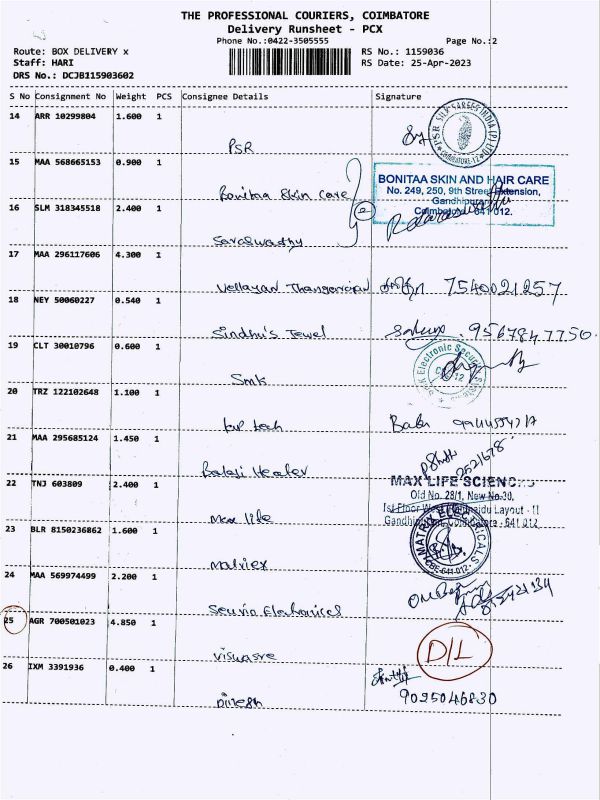 THE PROFESSIONAL COURIERS, COIMBATORE
Delivery Runsheet - PCX
Phone No.:0422-3505555
Page No.:2
Route: BOX DELIVERY x
RS No.: 1159036
Staff: HARI
RS Date: 25-Apr-2023
DRS No.: DCJB115903602
S No Consignment No Weight PCS Consignee Details Signature
14 ARR 10299804 1.600 1
PSR
PSR SILK SAREES INDIA (P) LTD
COIMBATORE-12
15 MAA 568665153 0.900 1
Bonitaa Skin Care
BONITAA SKIN AND HAIR CARE
No. 249, 250, 9th Street Extension,
Gandhipuram,
Coimbatore - 641 012.
16 SLM 318345518 2.400 1
Saraswathy
17 MAA 296117606 4.300 1
Vellayan 7540021257
18 NEY 50060227 0.540 1
Sindhu's Jewel 9567847750
19 CLT 30010796 0.600 1
SMK
Electronic Security
20 TRZ 122102648 1.100 1
tech Babu
21 MAA 295685124 1.450 1
Balaji Heater
2521678
22 TNJ 603809 2.400 1
Max life
MAX LIFE SCIENCES
Old No. 28/1, New No.30,
1st Floor West Layout - II
Gandhipuram, Coimbatore - 641 012
23 BLR 8150236862 1.600 1
Matriex
MATRIX ELECTRICALS
CBE-641 012.
24 MAA 569974499 2.200 1
Electronics
25 AGR 700501023 4.850 1
D/L
26 IXM 3391936 0.400 1
Dinesh
9025046830